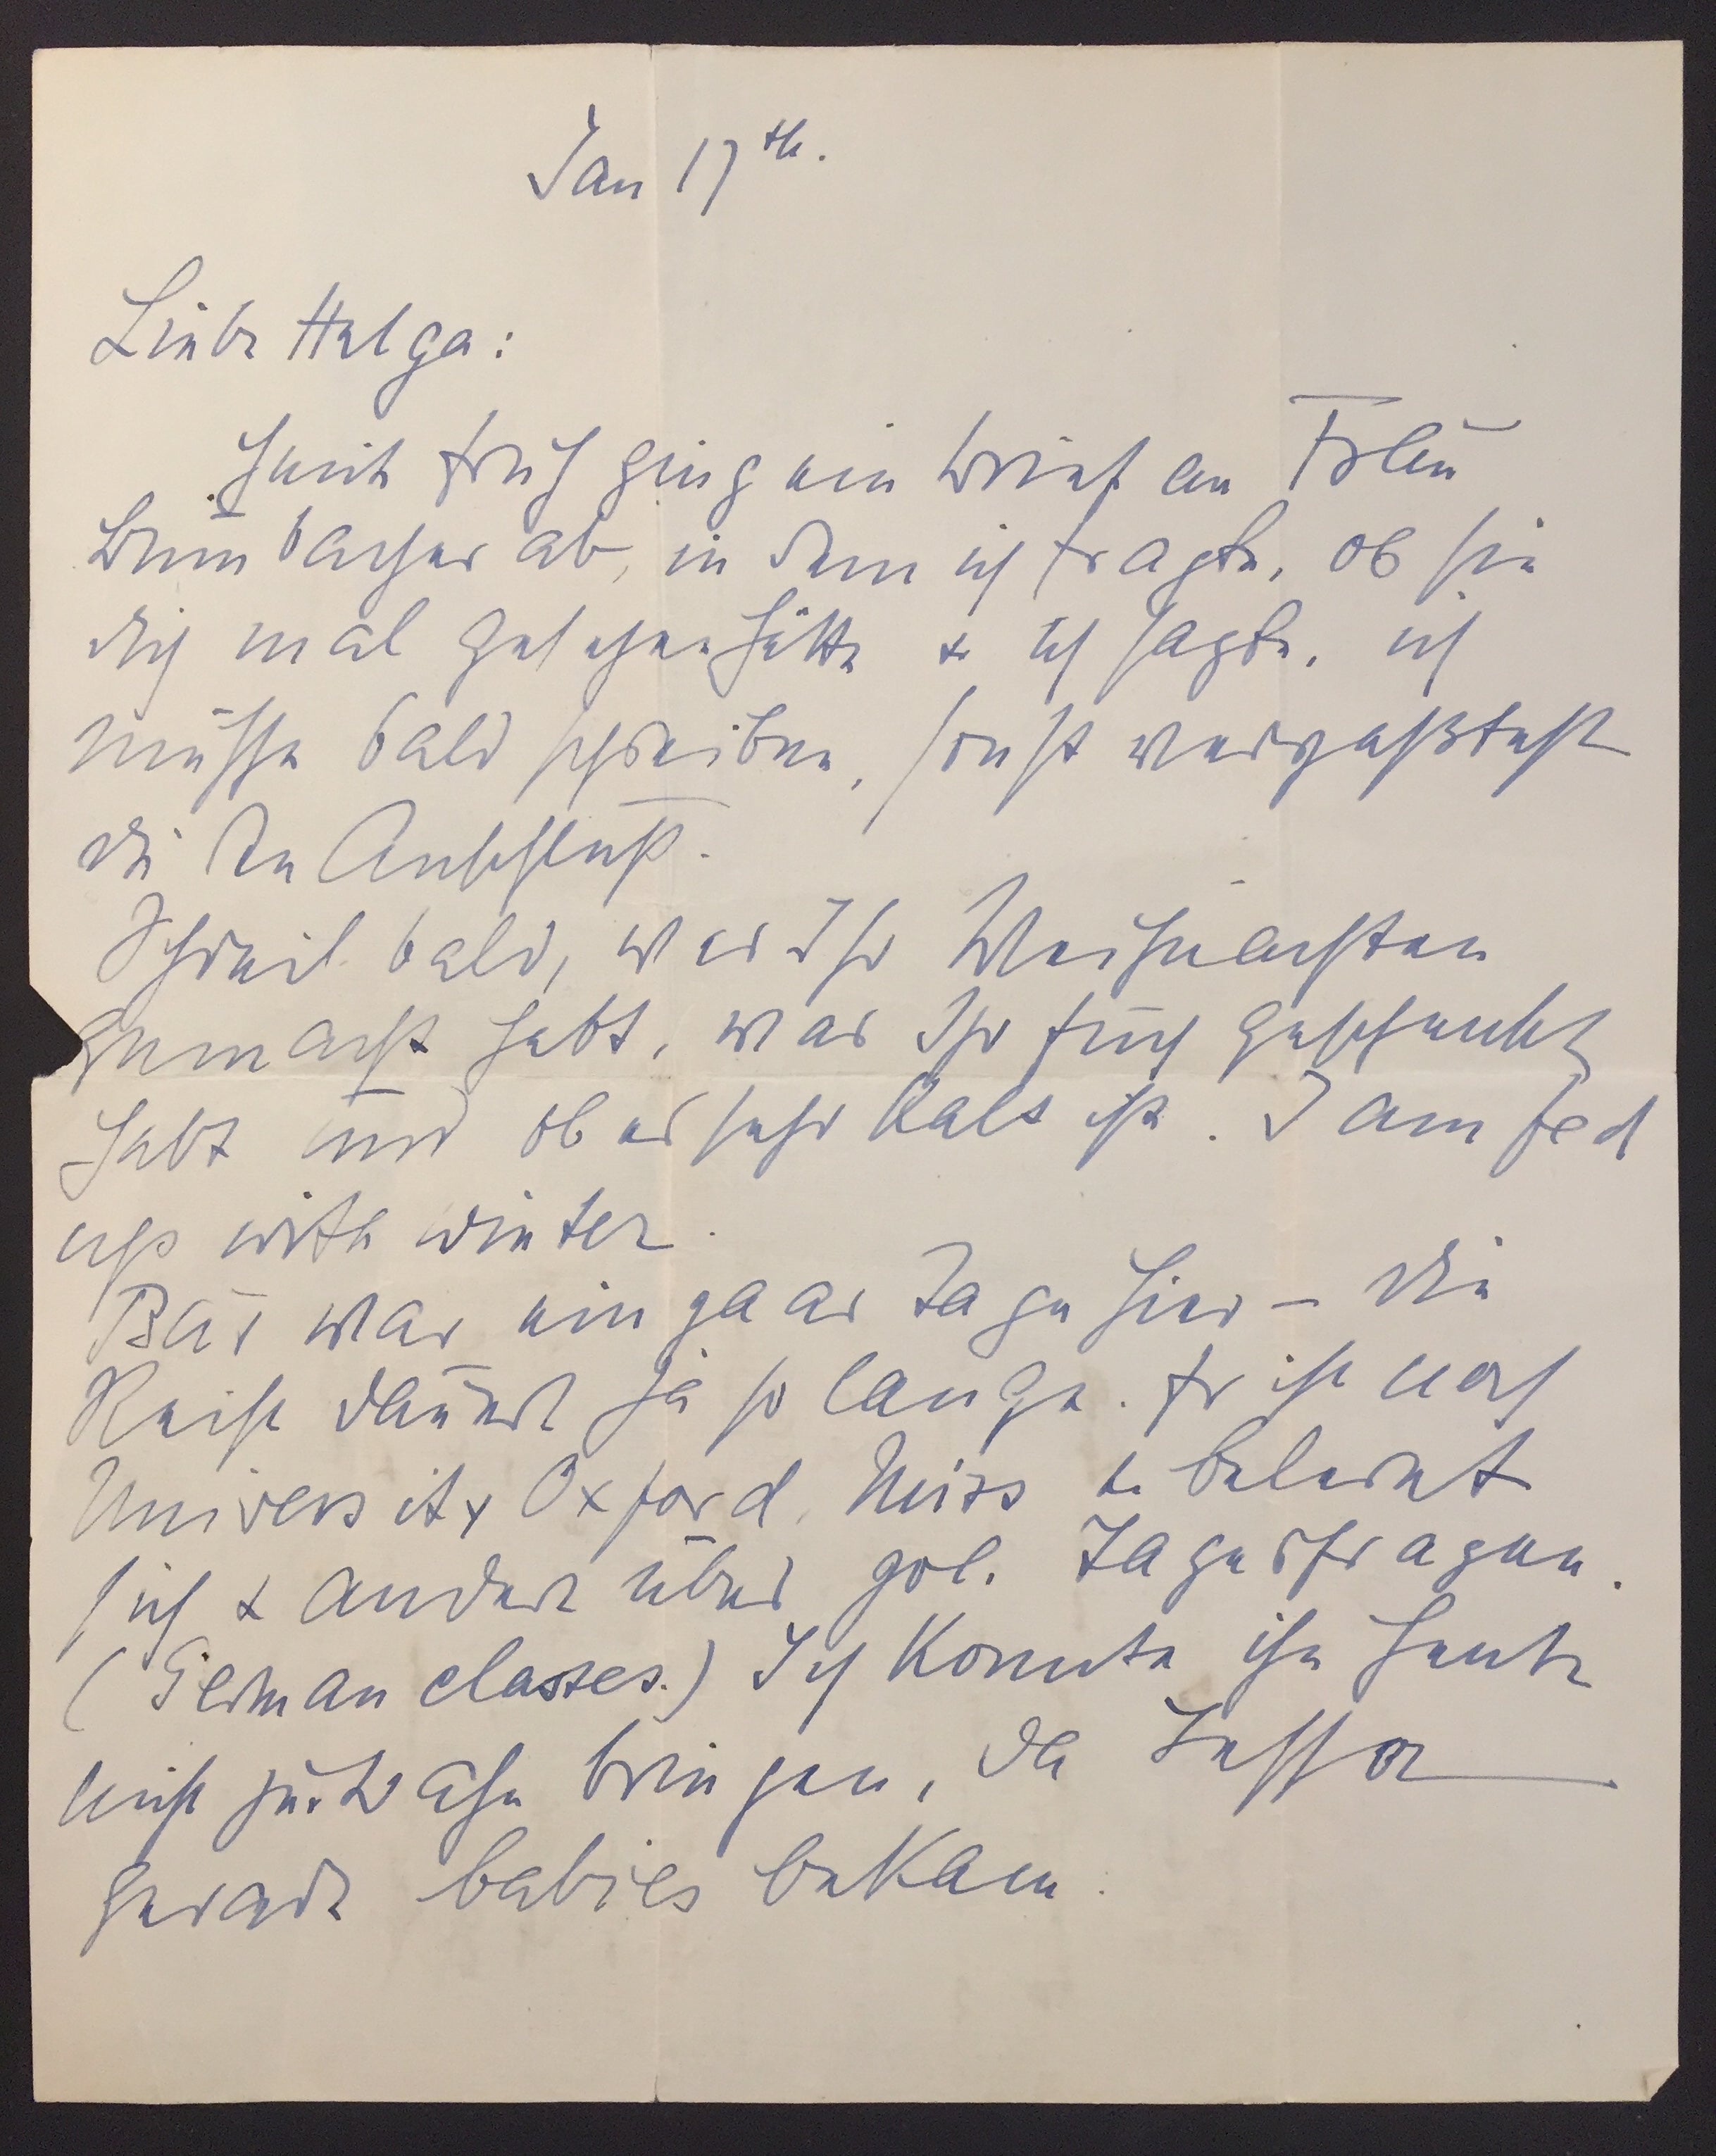 Jan 17th.
Liebe Helga:
Heute früh ging ein Brief an Frau
Baumbacher ab, in dem ich fragte, ob sie
dich mal gesehen hätte & ich sagte, ich
müsse bald schreiben, sonst
du den Anschluß.
Schreib bald, was Ihr Weihnachten
gemacht habt, was Ihr Euch geschenkt
habt und ob es sehr kalt ist. I am fed
up with winter.
Bär war ein paar Tage hier – die
Reise dauert ja so lange. Er ist nach
University Oxford, Miss & belernt
sich & andere über pol. Tagesfragen.
(German classes.) Ich konnte ihn heute
nicht zur Bahn bringen, da
gerade babies bekam.